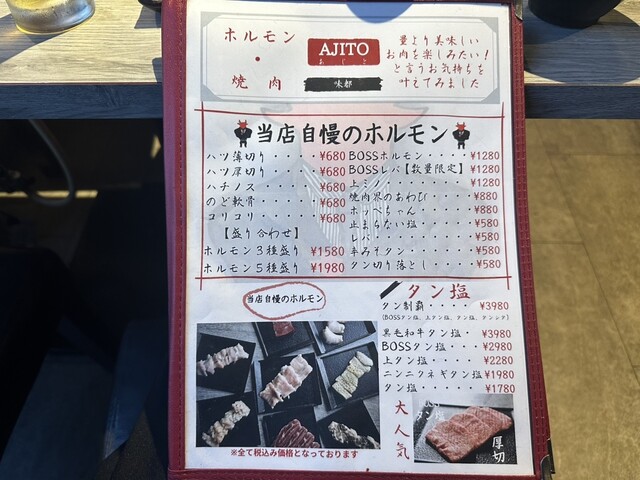 ホルモン
・
焼肉
AJITO
あじと
味都
量より美味しい
お肉を楽しみたい!
と言うお気持ちを
叶えてみました
当店自慢のホルモン
ハツ薄切り・・・・¥680
ハツ厚切り・・・・¥680
ハチノス・・・・・¥680
のど軟骨・・・・・¥680
コリコリ・・・・・¥680
【盛り合わせ】
ホルモン3種盛り ¥1580
ホルモン5種盛り ¥1980
BOSSホルモン・・・・¥1280
BOSSレバ【数量限定】 ¥1280
上ミノ・・・・・・・¥1280
焼肉界のあわび・・・¥880
ホッペちゃん・・・・¥880
止まらない塩・・・・¥580
レバ・・・・・・・・¥580
辛みそタン・・・・・¥580
タン切り落とし・・・¥580
当店自慢のホルモン
※全て税込み価格となっております
タン塩
タン制覇・・・・¥3980
(BOSSタン塩、上タン塩、タン塩、タンシタ)
黒毛和牛タン塩・¥3980
BOSSタン塩・・・¥2980
上タン塩・・・・¥2280
ニンニクネギタン塩¥1980
タン塩・・・・・¥1780
大人気
タン塩
厚切